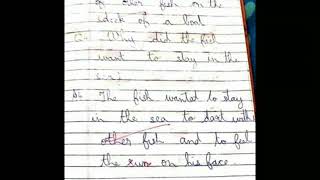 of other fish on the
deck of a boat
Q4. Why did the fish
want to stay in the
sea?
A. The fish wanted to stay
in the sea to dart with
other fish and to feel
the sun on his face